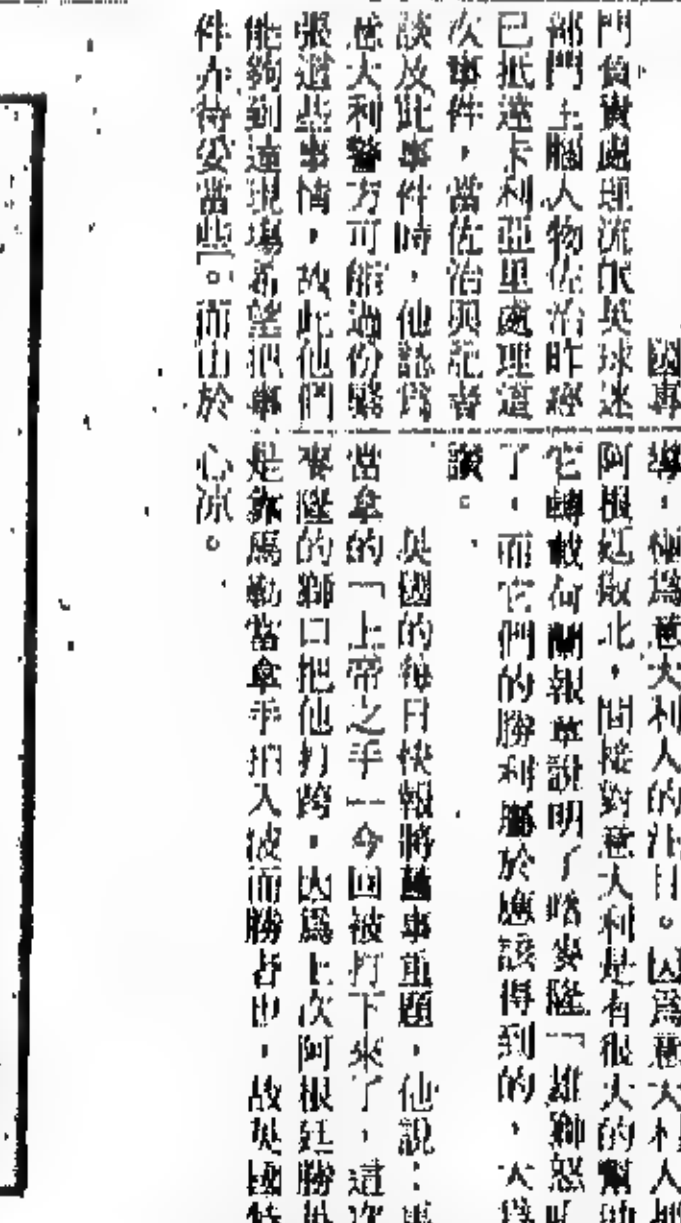 國專
門負責處理流氓英球迷
部門主腦人物佐治昨經
已抵達卡利亞里處理這
次事件，當佐治與記者
談及此事件時，他認爲
意大利警方可能過份緊
張這些事情，故此他們
能夠到達現場希望把事
件办得妥當些」。而由於
導，極爲意大利人的注目。因爲意大利人
阿根廷敗北，間接對意大利是有很大的幫助
它轉載有關報章說明了喀麥隆「雄獅怒吼
了，而它們的勝利屬於應該得到的，大爲
讚。
英國的每日快報將舊事重題，他說：
當拿的「上帝之手」今回被打下來了，這次
麥隆的獅口把他打跨，因爲上次阿根廷勝英
是靠馬勒當拿手打入波而勝者也，故英國
心涼。